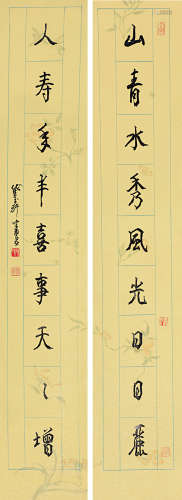 山青水秀風光日日麗
人寿年丰喜事天〻增